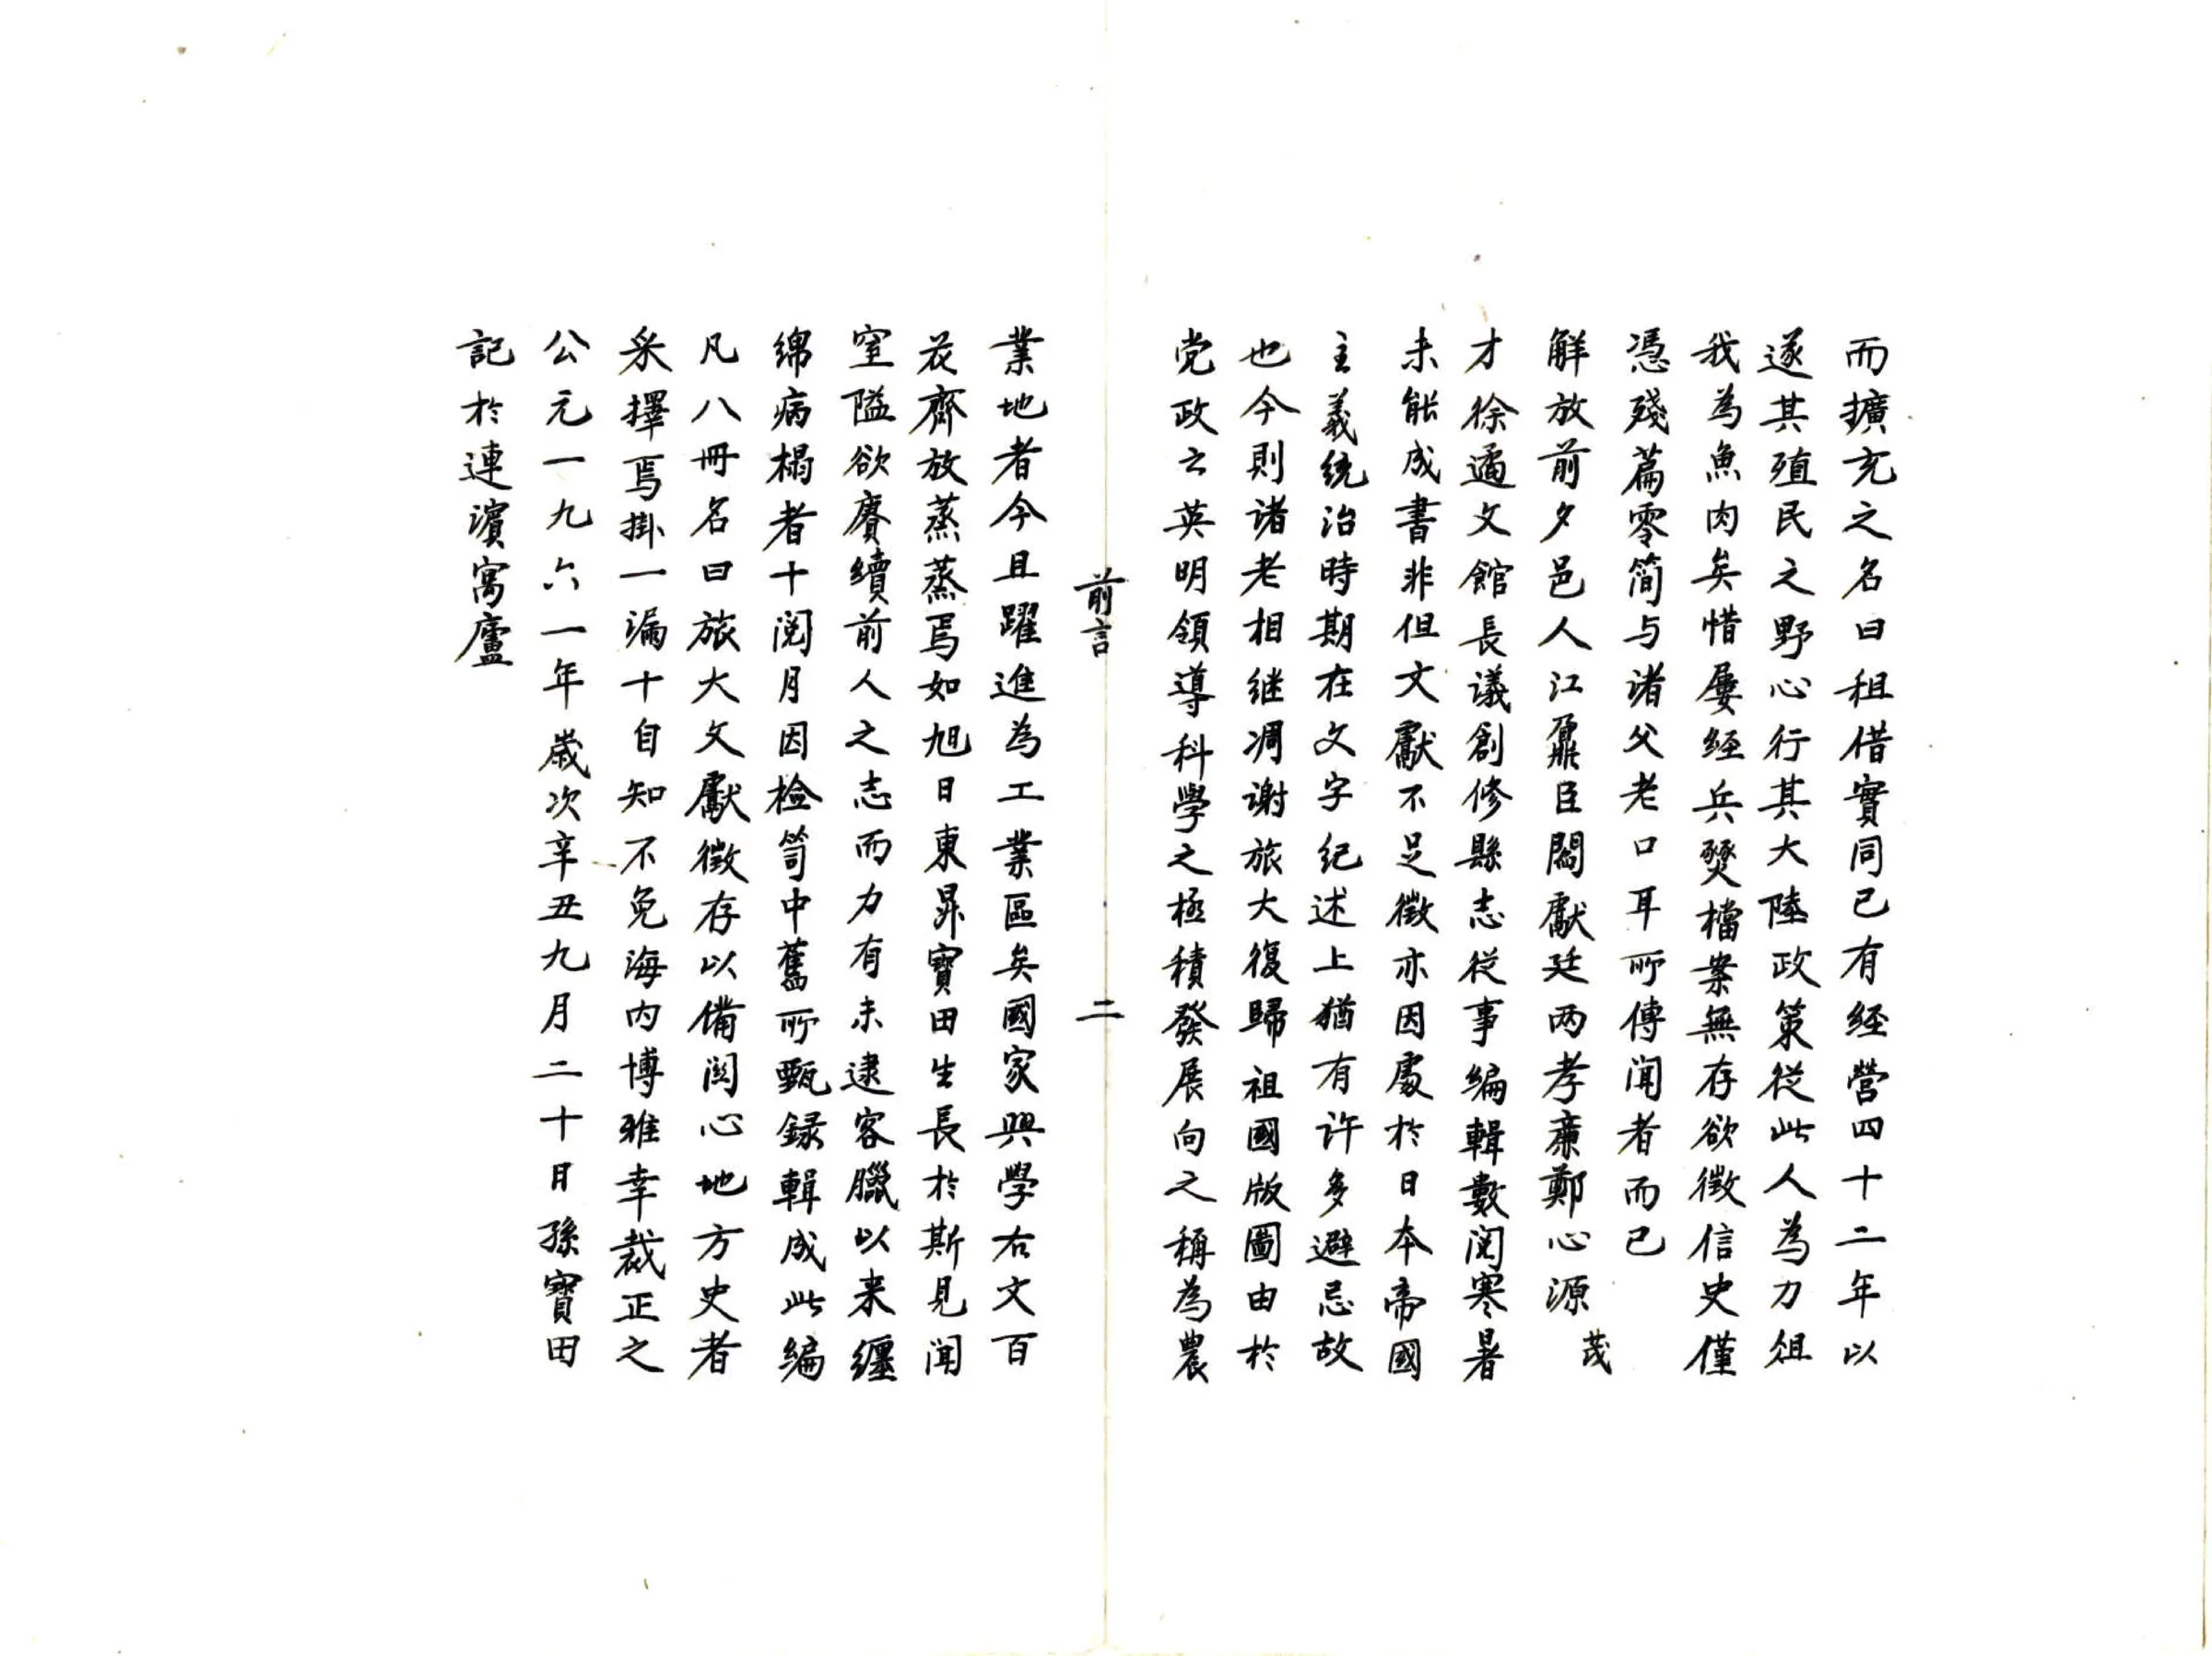 而擴充之名曰租借實同己有経營四十二年以
遂其殖民之野心行其大陸政策從此人為刀俎
我為魚肉矣惜屢経兵燹檔案無存欲徵信史僅
憑殘篇零简与诸父老口耳所傳闻者而已
解放前夕邑人江鼐臣閻獻廷两孝廉鄭心源茂
才徐遹文館長議創修縣志從事編輯數閱寒暑
未能成書非但文獻不足徵亦因處於日本帝國
主義統治時期在文字纪述上猶有许多避忌故
也今則诸老相继凋谢旅大復歸祖國版圖由於
党政之英明領導科學之極積發展向之稱為農
前言 二
業地者今且躍進為工業區矣國家興學右文百
花齊放蒸蒸焉如旭日東昇寶田生長於斯見闻
窒隘欲賡續前人之志而力有未逮客臘以来纏
綿病榻者十閱月因检笥中舊所甄錄輯成此編
凡八冊名曰旅大文獻徵存以備関心地方史者
采擇焉掛一漏十自知不免海内博雅幸裁正之
公元一九六一年歲次辛丑九月二十日孫寶田
記於連濱寓廬